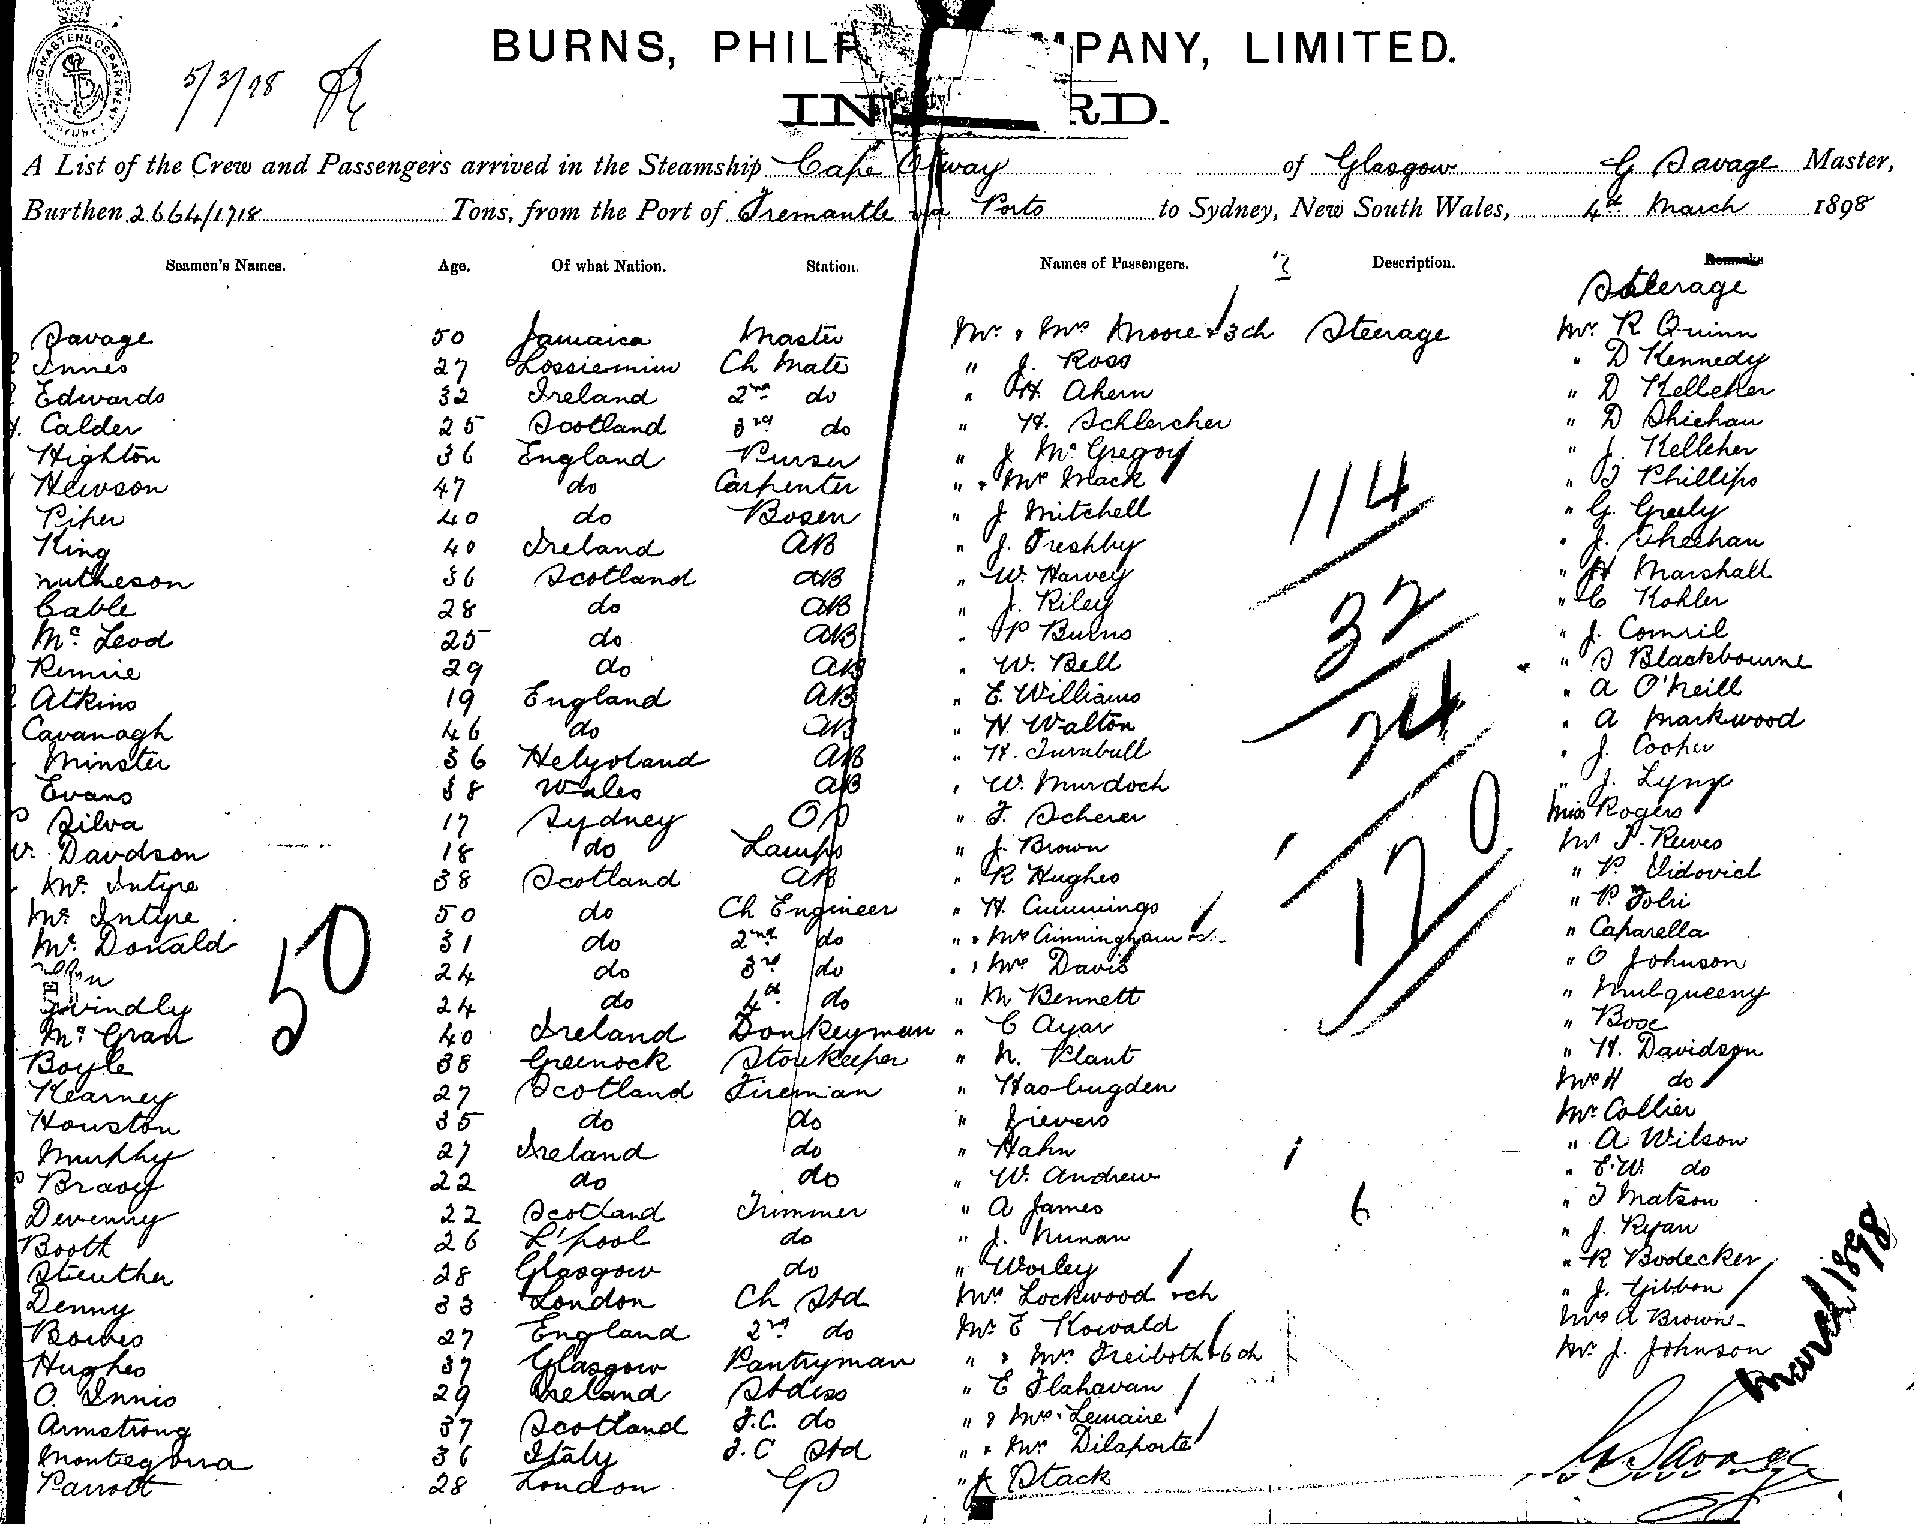 BURNS, PHILP MPANY, LIMITED.
5/3/98
IN RD.
A List of the Crew and Passengers arrived in the Steamship Cape Otway of Glasgow G Savage Master,
Burthen 2664/1718 Tons, from the Port of Fremantle via Ports to Sydney, New South Wales, 4th March 1898
Seamen's Names. Age. Of what Nation. Station. Names of Passengers. Description. Remarks
Steerage
Savage 50 Jamaica Master Mr. & Mrs Moore & 3 ch Steerage Mr. R Quinn
Innes 27 Lossiemim Ch Mate " J. Ross " D Kennedy
Edwards 32 Ireland 2nd do " H. Ahern " D Kelleher
Calder 25 Scotland 3rd do " H. Schlercher " D Shiehan
Highton 36 England Purser " J McGregor " J. Kelleher
Hewson 47 do Carpenter " & Mrs Mack " Phillips
Piper 40 do Bosen " J Mitchell " G. Greely
King 40 Ireland AB " J. Freshby " J. Sheehan
114
Mutheson 36 Scotland AB " W. Harvey " H Marshall
Cable 28 do AB " J. Riley " C Kohler
32
McLeod 25 do AB " P Burns " J. Comril
Rennie 29 do AB " W. Bell " Blackbourne
Atkins 19 England AB " E. Williams " A O'Neill
24
Cavanagh 46 do AB " H Walton " A Markwood
Minster 36 Helyoland AB " H. Turnbull " J. Cooper
Evans 38 Wales AB " W. Murdoch " J. Lynx
Silva 17 Sydney OS " F. Scherer Miss Rogers
Davdson 18 do Lamps " J. Brown Mr Reeves
McIntyre 38 Scotland AB " R Hughes " P. Vidovich
170
McIntyre 50 do Ch Engineer " H. Cummings " P. Tolri
McDonald 31 do 2nd do " & Mrs Cunningham " Caparella
50
24 do 3rd do " & Mrs Davis " O Johnson
24 do 4th do " M Bennett " Mulqueeny
McGran 40 Ireland Donkeyman " C Ayar " Bose
Boyle 38 Greenock Storekeeper " N. Plant " H. Davidson
Kearney 27 Scotland Fireman " Haslugden Mrs H do
Houston 35 do do " Sievers Mr Collier
Murphy 27 Ireland do " Hahn " A Wilson
Bravy 22 do do " W. Andrew " E.W. do
Devenny 22 Scotland Trimmer " A James 6 " Matson
Booth 26 L'pool do " J. Nunan " J. Ryan
Steuther 28 Glasgow do " Worley " R Bodecker
Denny 33 London Ch Std Mrs Lockwood & ch " J. Gibbon
Bowes 27 England 2nd do Mr E Kowald Mrs A Brown
Hughes 37 Glasgow Pantryman " & Mrs Freiboth & 6 ch Mr. J. Johnson
March 1898
O. Innis 29 Ireland Stdess " E Flahavan
Armstrong 37 Scotland F.C. do " & Mrs. Lemaire
Montegoria 36 Italy F.C Std " & Mrs Dilaporte
G Savage
Parrott 28 London " Stack